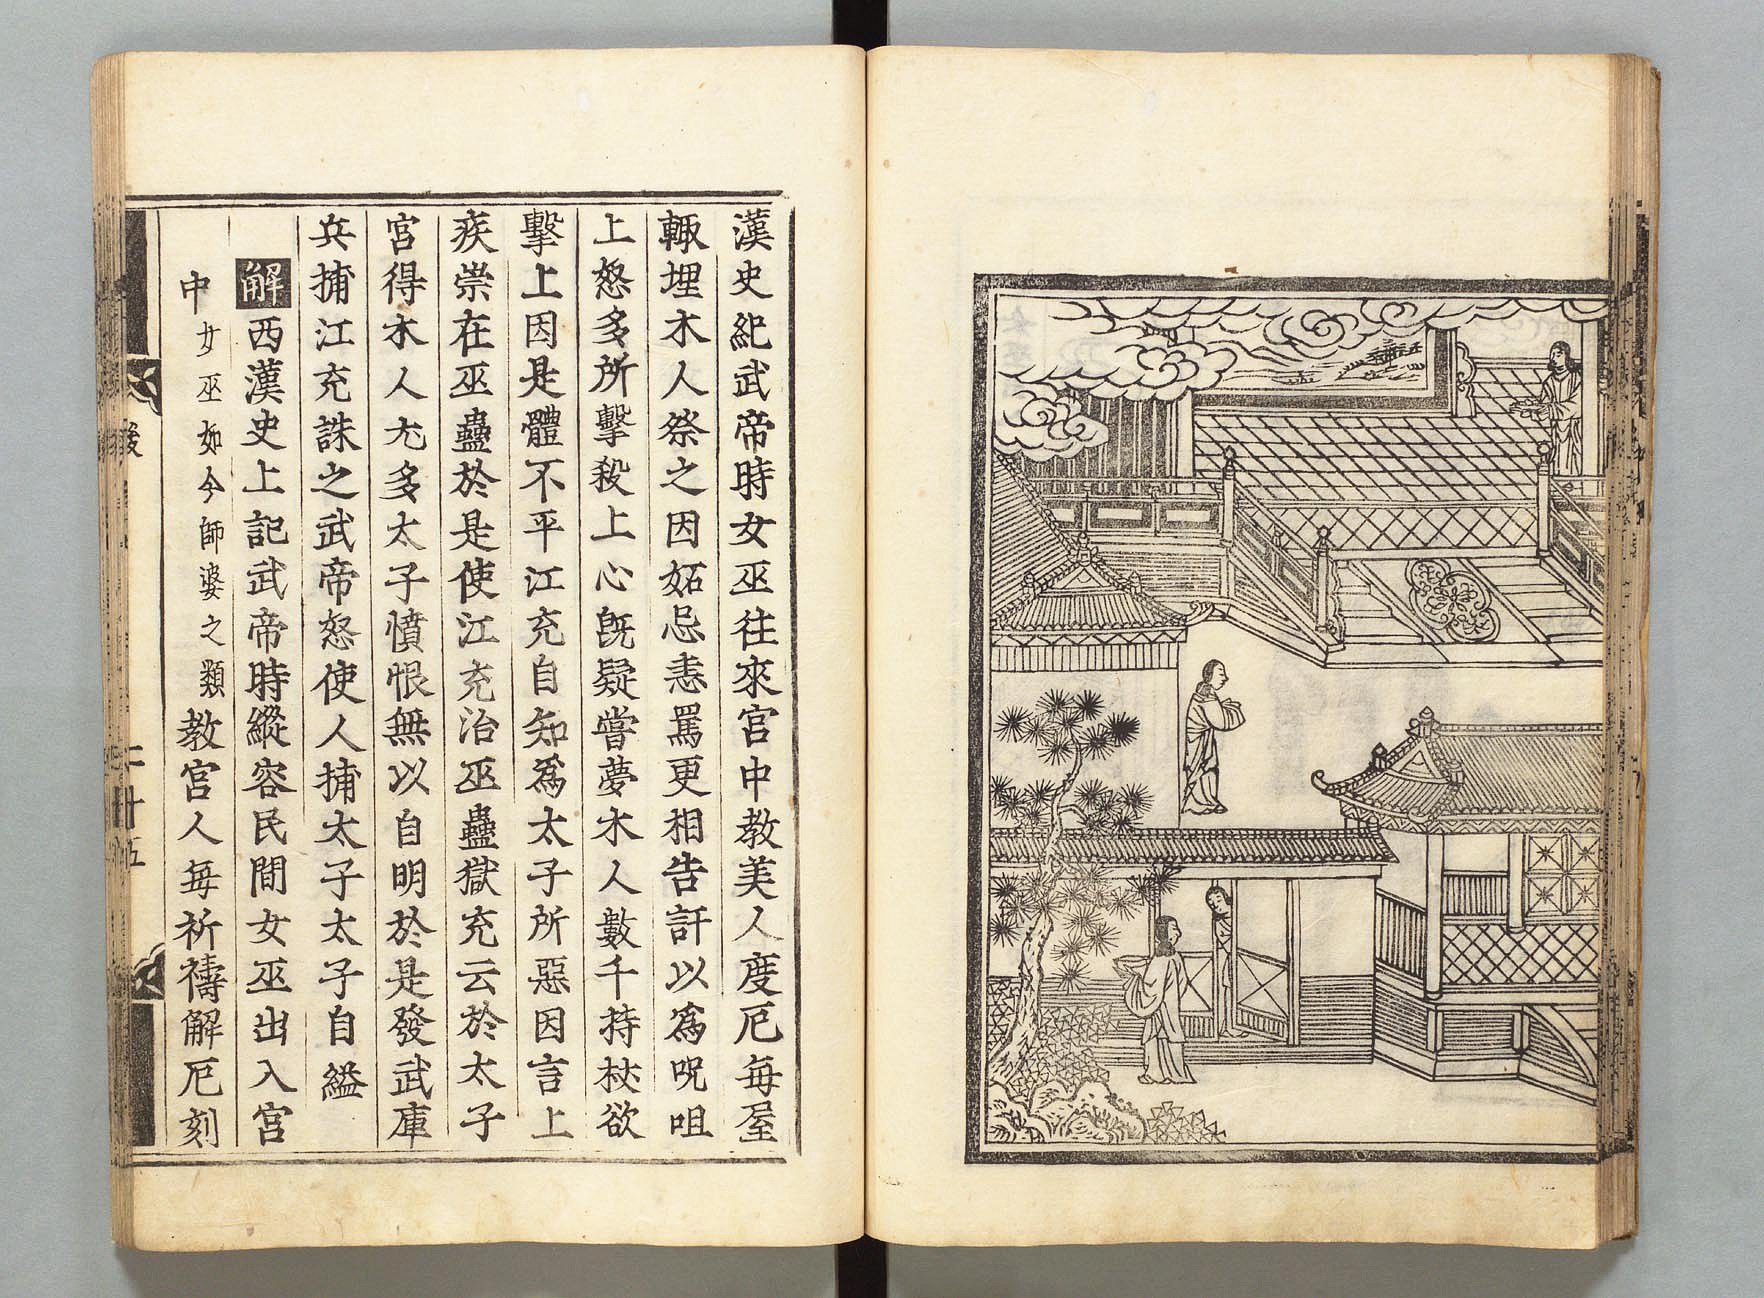 漢史紀武帝時女巫往來宮中教美人度厄每屋
輙埋木人祭之因妬忌恚罵更相告訐以為呪咀
上怒多所擊殺上心旣疑嘗夢木人數千持杖欲
擊上因是體不平江充自知為太子所惡因言上
疾祟在巫蠱於是使江充治巫蠱獄充云於太子
宮得木人尢多太子憤恨無以自明於是發武庫
兵捕江充誅之武帝怒使人捕太子太子自縊
解西漢史上記武帝時縱容民間女巫出入宮
中女巫如今師婆之類教宮人每祈禱解厄刻